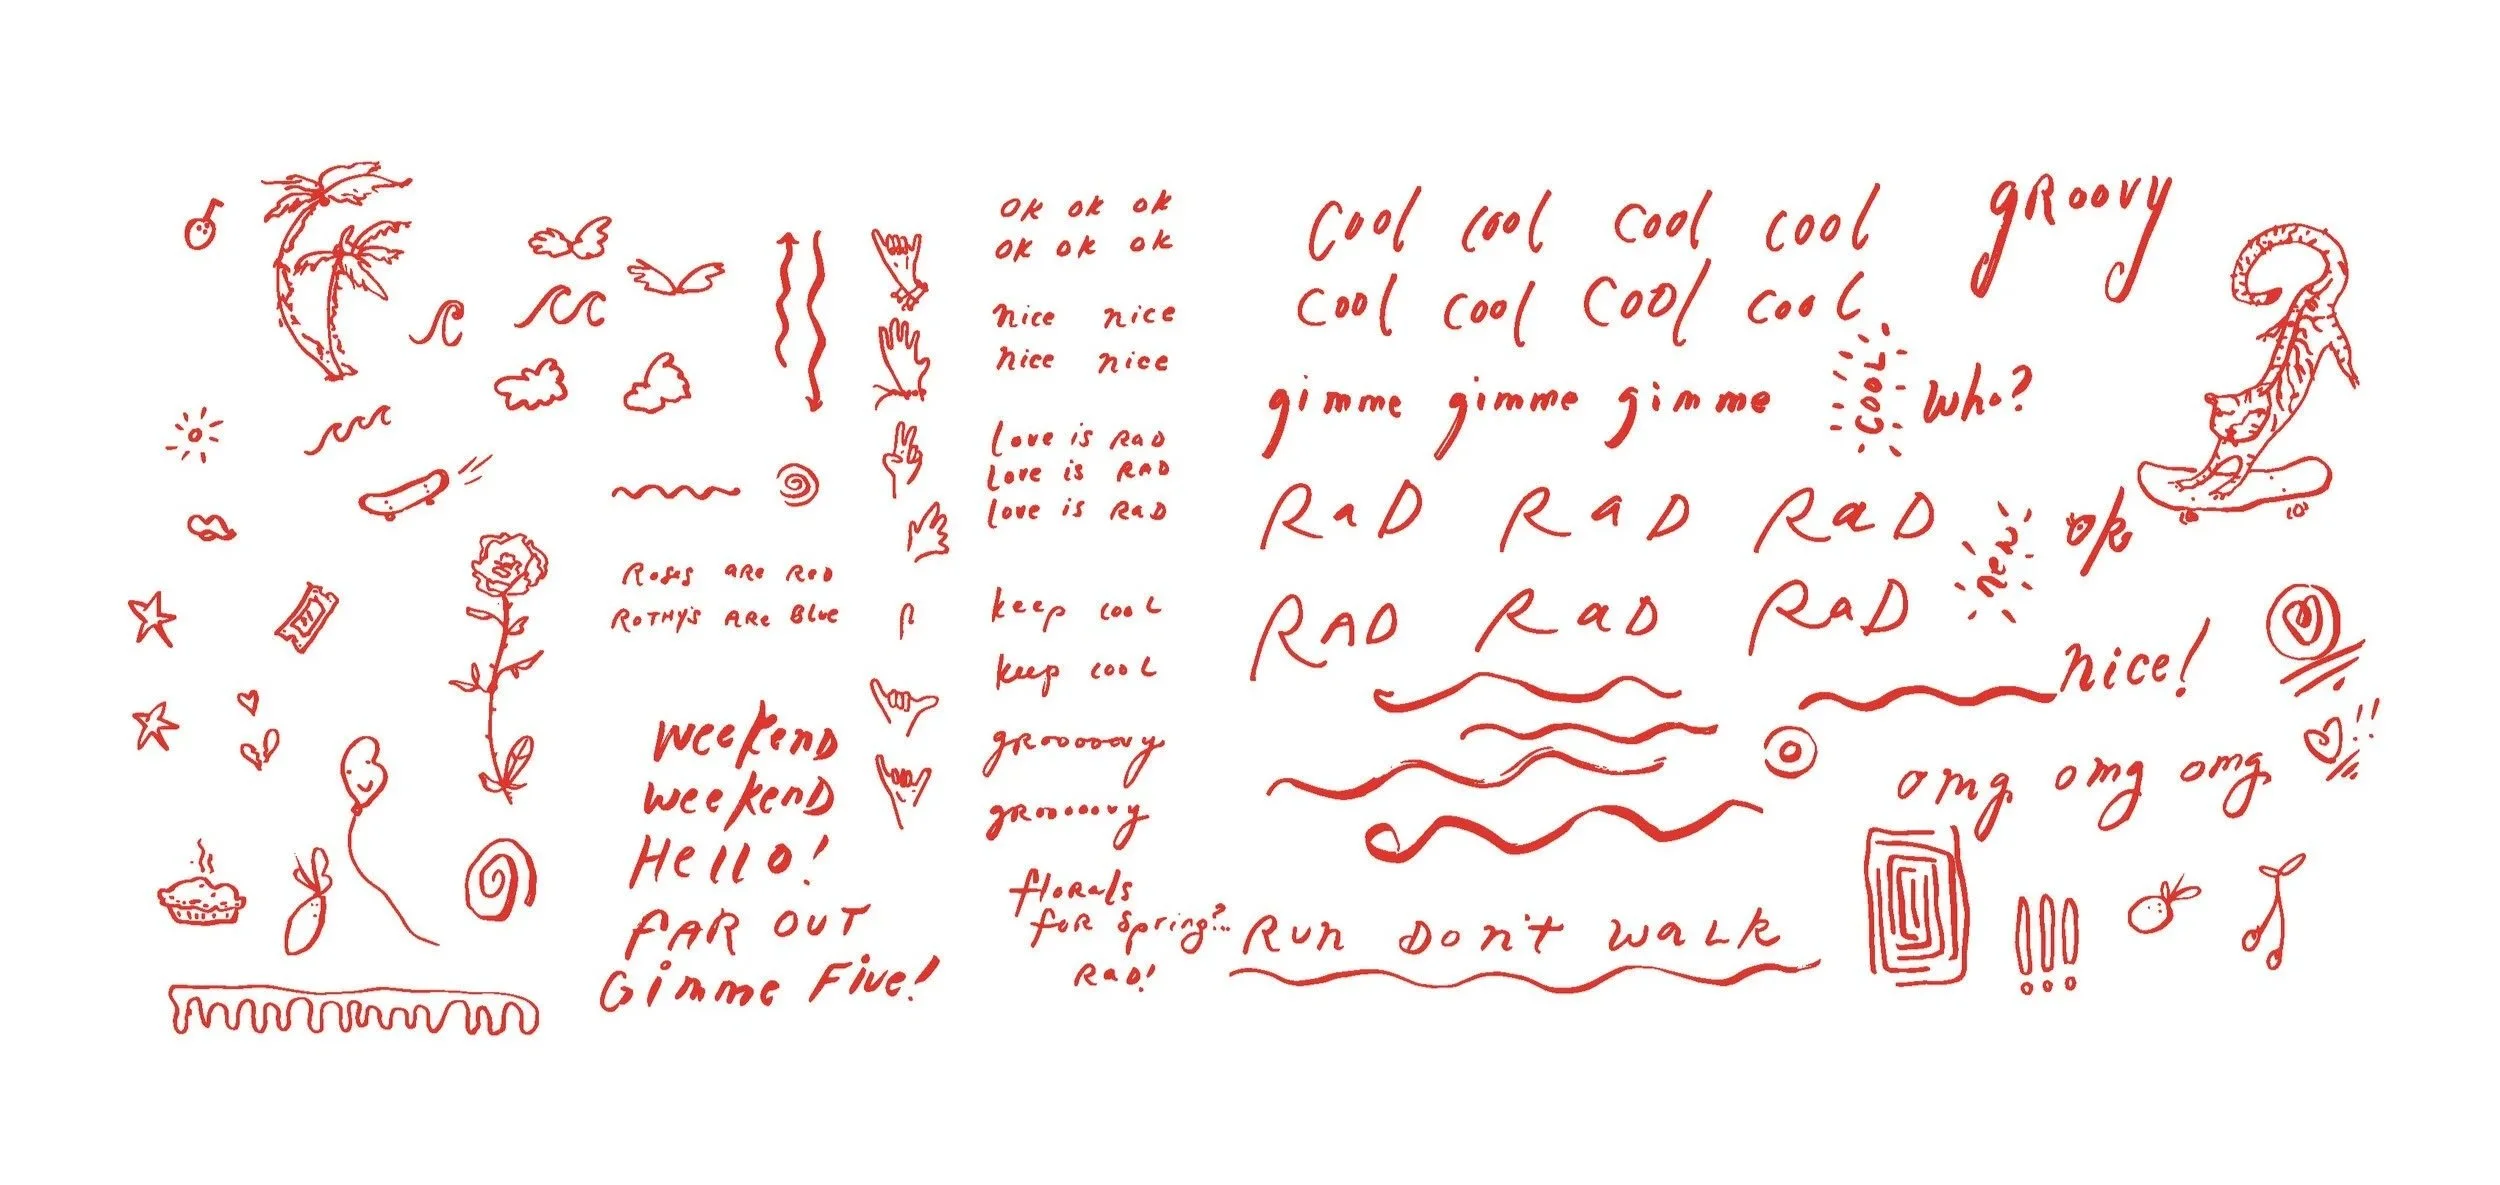 OK OK OK
OK OK OK
nice nice
nice nice
Love is RAD
Love is RAD
Love is RaD
Roses are red
ROTHY'S ARe BlUe
keep cooL
keep cooL
gRoooovy
gRoooovy
weekenD
weekenD
Hello!
FAR OUT
Gimme Five!
florals
foR Spring?..
RaD!
Cool cool Cool cool
Cool cool Cool cool
gRoovy
gimme gimme gimme
COOL
Who?
RaD RaD RaD
RAD RaD RaD
new
ok
nice!
!!
omg omg omg
Run Don't walk
!!!